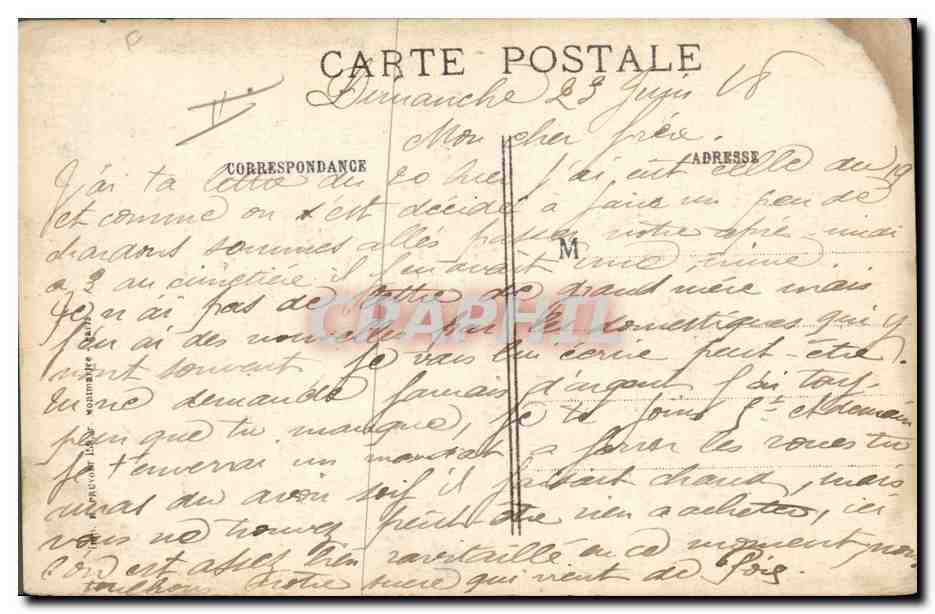 CARTE POSTALE
Dimanche 23 Juin 18
Mon cher frère.
CORRESPONDANCE
ADRESSE
J'ai ta lettre du 20 hier j'ai eut celle du 19
et comme on s'est décidé à faire un peu de
chardons sommes allés passer notre après-midi
a 3 au cimetière il y en avait une mine.
M
Je n'ai pas de lettre de grand mère mais
j'en ai des nouvelles par les domestiques qui y
vont souvent je vais lui écrire peut-être.
Tu ne demandes jamais d'argent j'ai touj.
peur que tu manque, je te joins 5f et demain
je t'enverrai un mandat a les roues tu
auras du avoir soif il faisait chaud, mais
vous ne trouvez peut-être rien a acheter, ici
on est assez bien ravitaillé en ce moment pour
notre sucre qui vient de Poix.
CPAPHIL